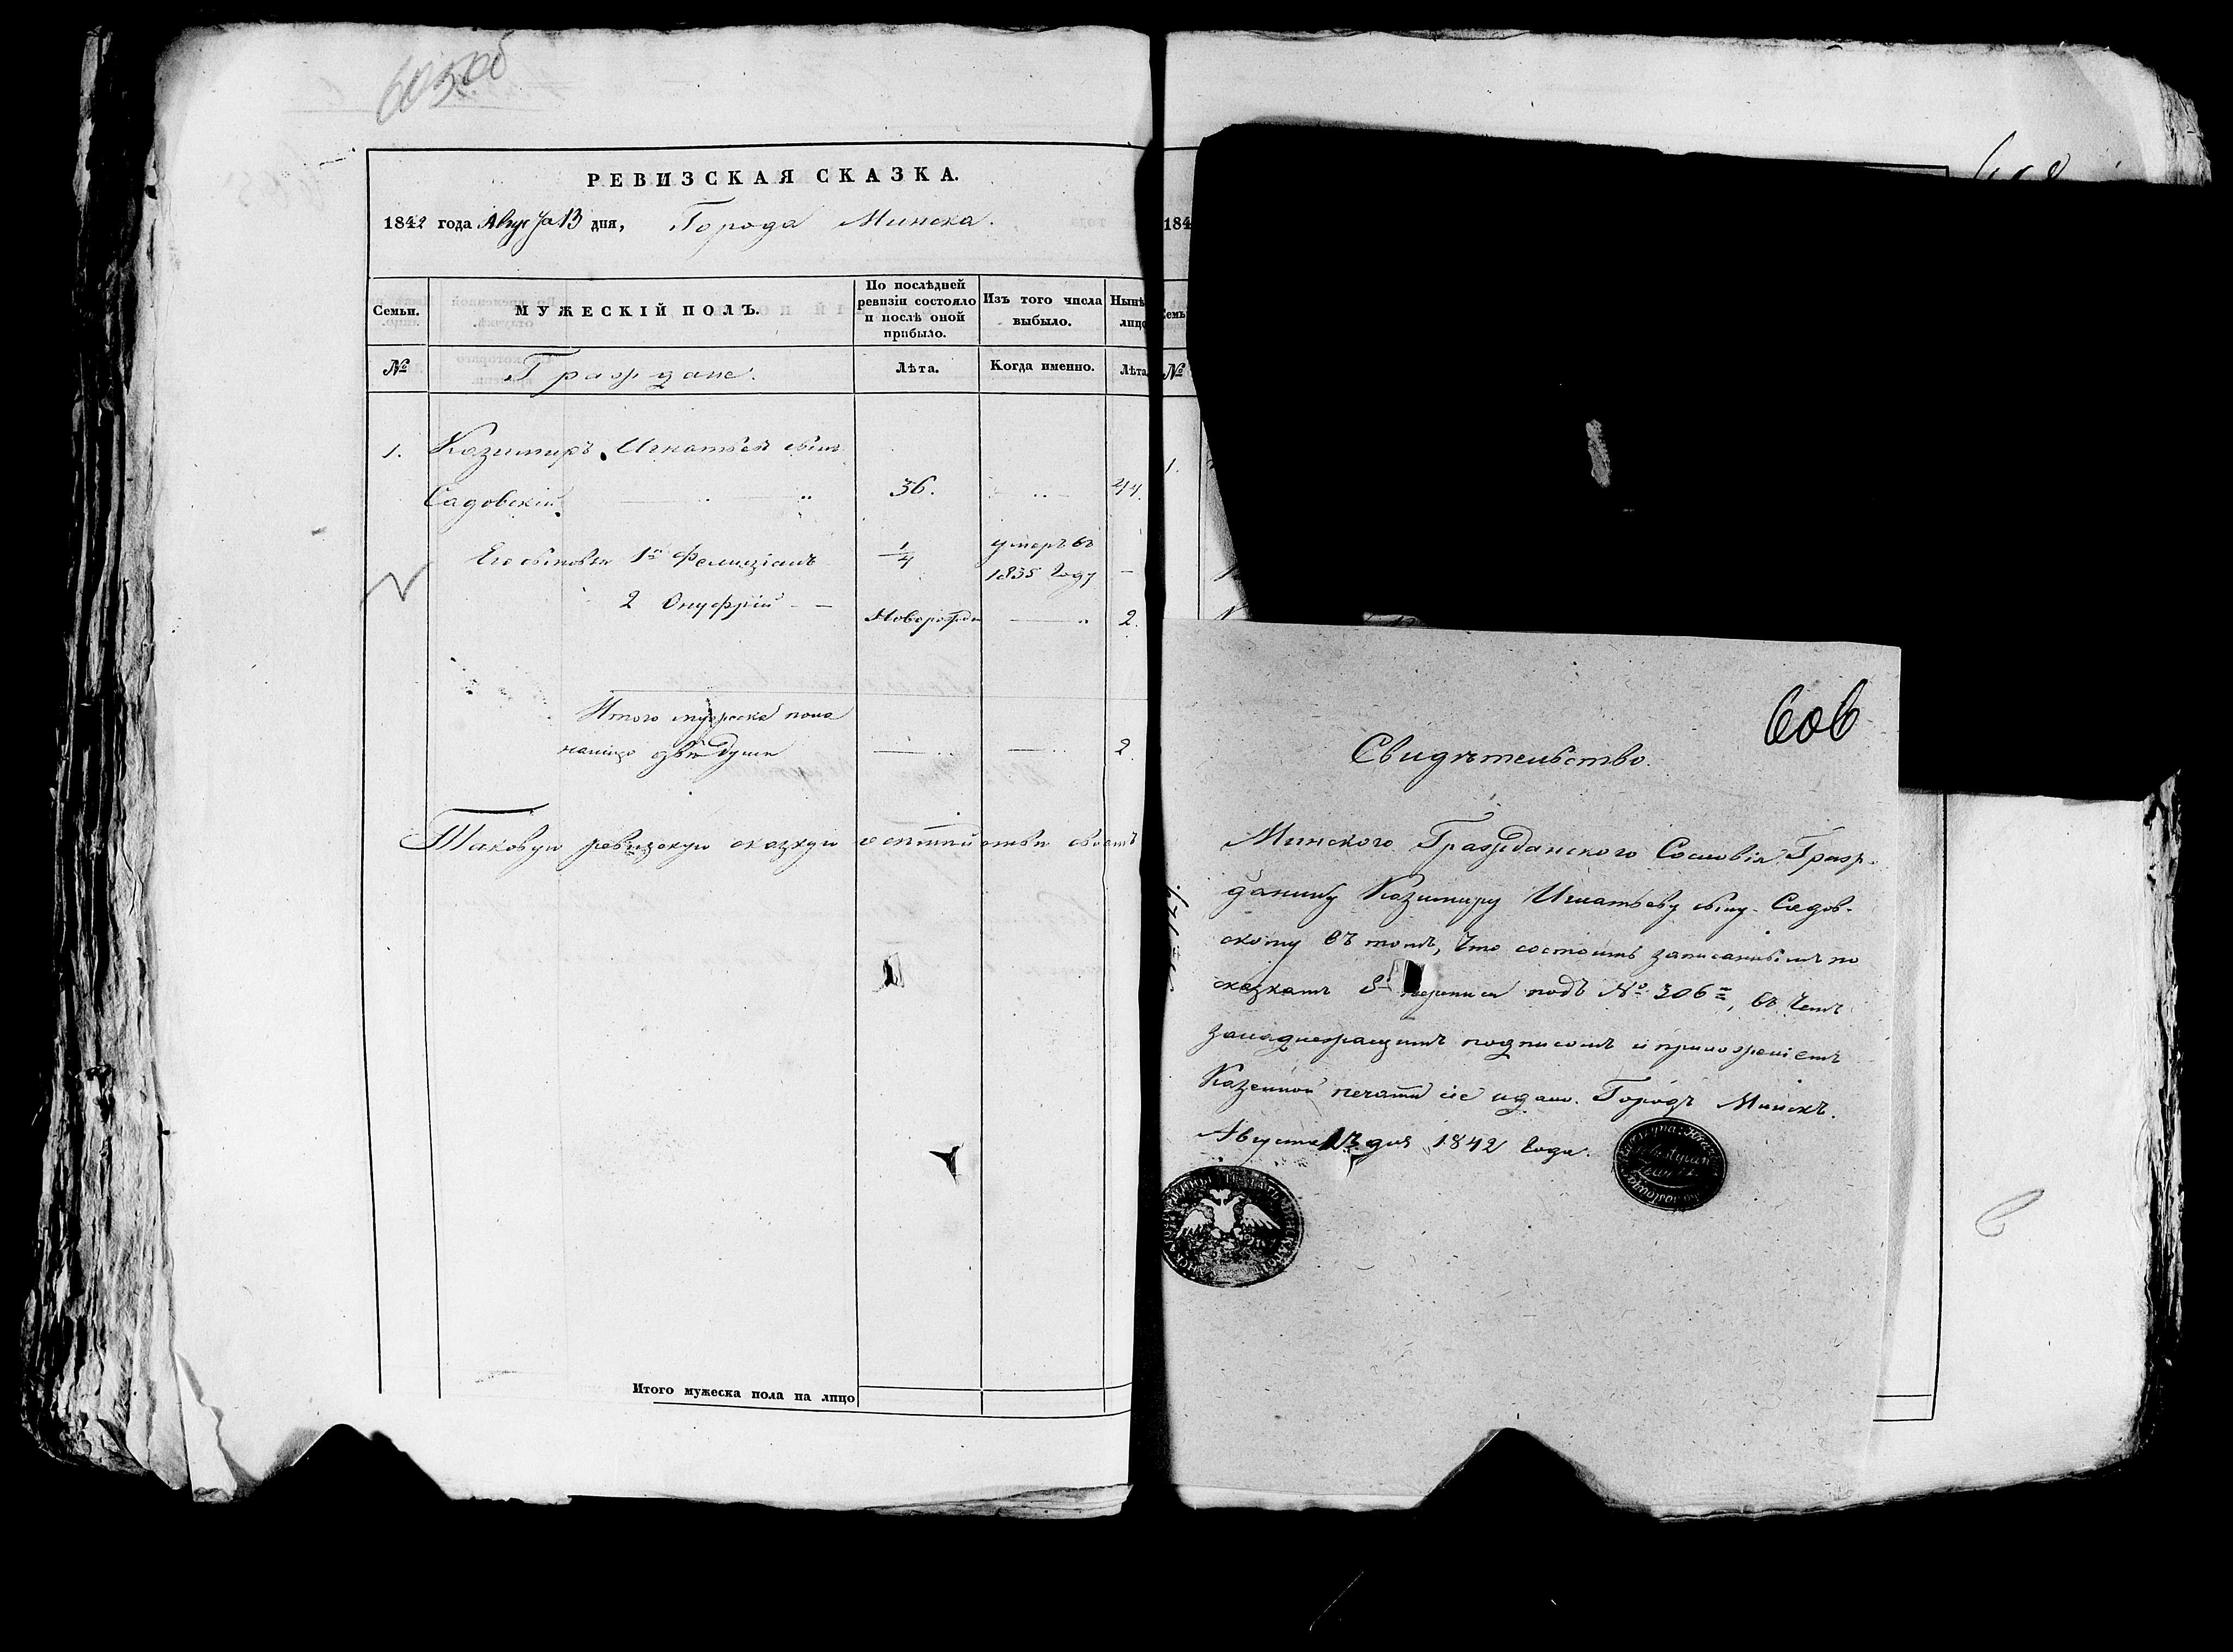 605об
РЕВИЗСКАЯ СКАЗКА.
1842 года Августа 13 дня, Города Минска.
Семьи. МУЖЕСКІЙ ПОЛЪ. По послѣдней ревизіи состояло и послѣ оной прибыло. Изъ того числа выбыло. Нынѣ лицо
№ Граждане. Лѣта. Когда именно. Лѣта
1. Казимиръ Игнатьевъ сынъ
Садовскій 36. 44.
Его сыновья 1й Фелиціанъ 1/4 умеръ въ
1835 году
2 Онуфрій Новорожден 2.
Итого мужеска пола
налицо двѣ души 2.
Таковую ревизскую сказку о
Итого мужеска пола на лицо
184
Семь
№
1.
606
Свидѣтельство.
Минского Гражданского Сословія Граж-
данину Казимиру Игнатьеву сыну Садов-
скому въ томъ, что состоитъ записаннымъ по
сказкамъ 8й подъ № 306, въ чемъ
занадлежащимъ подписомъ и приложеніемъ
Казенной печати сіе идано. Городъ Минскъ.
Августа 13 дня 1842 года.